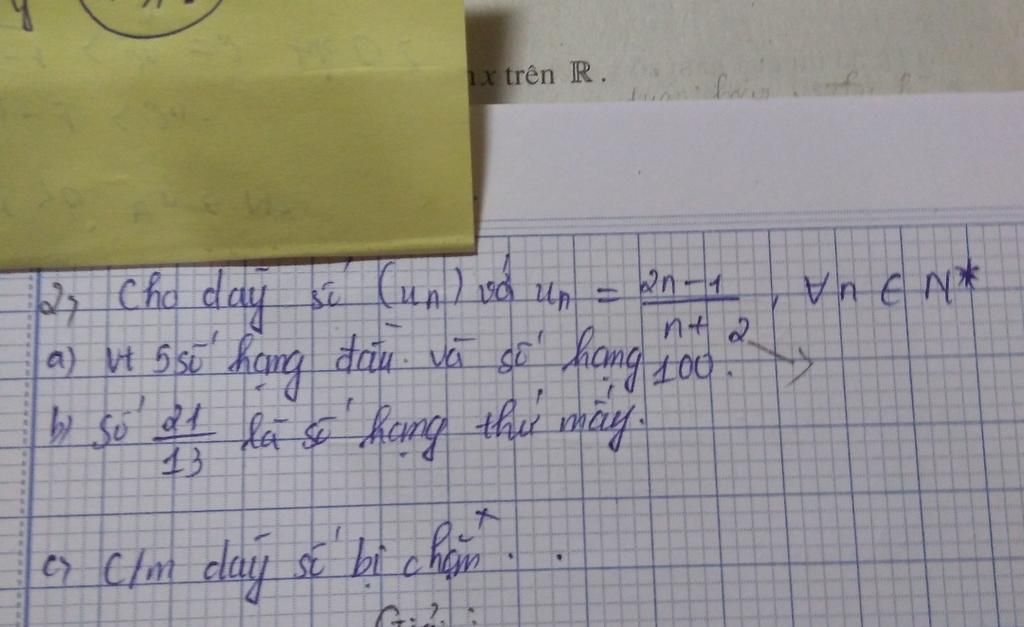 x trên ℝ.
2, Cho dãy số (uₙ) với uₙ = \frac{2n-1}{n+2}, ∀n ∈ N*
a) vt 5 số hạng đầu. và số hạng 100.
b) số \frac{21}{13} là số hạng thứ mấy.
c, c/m dãy số bị chặn.